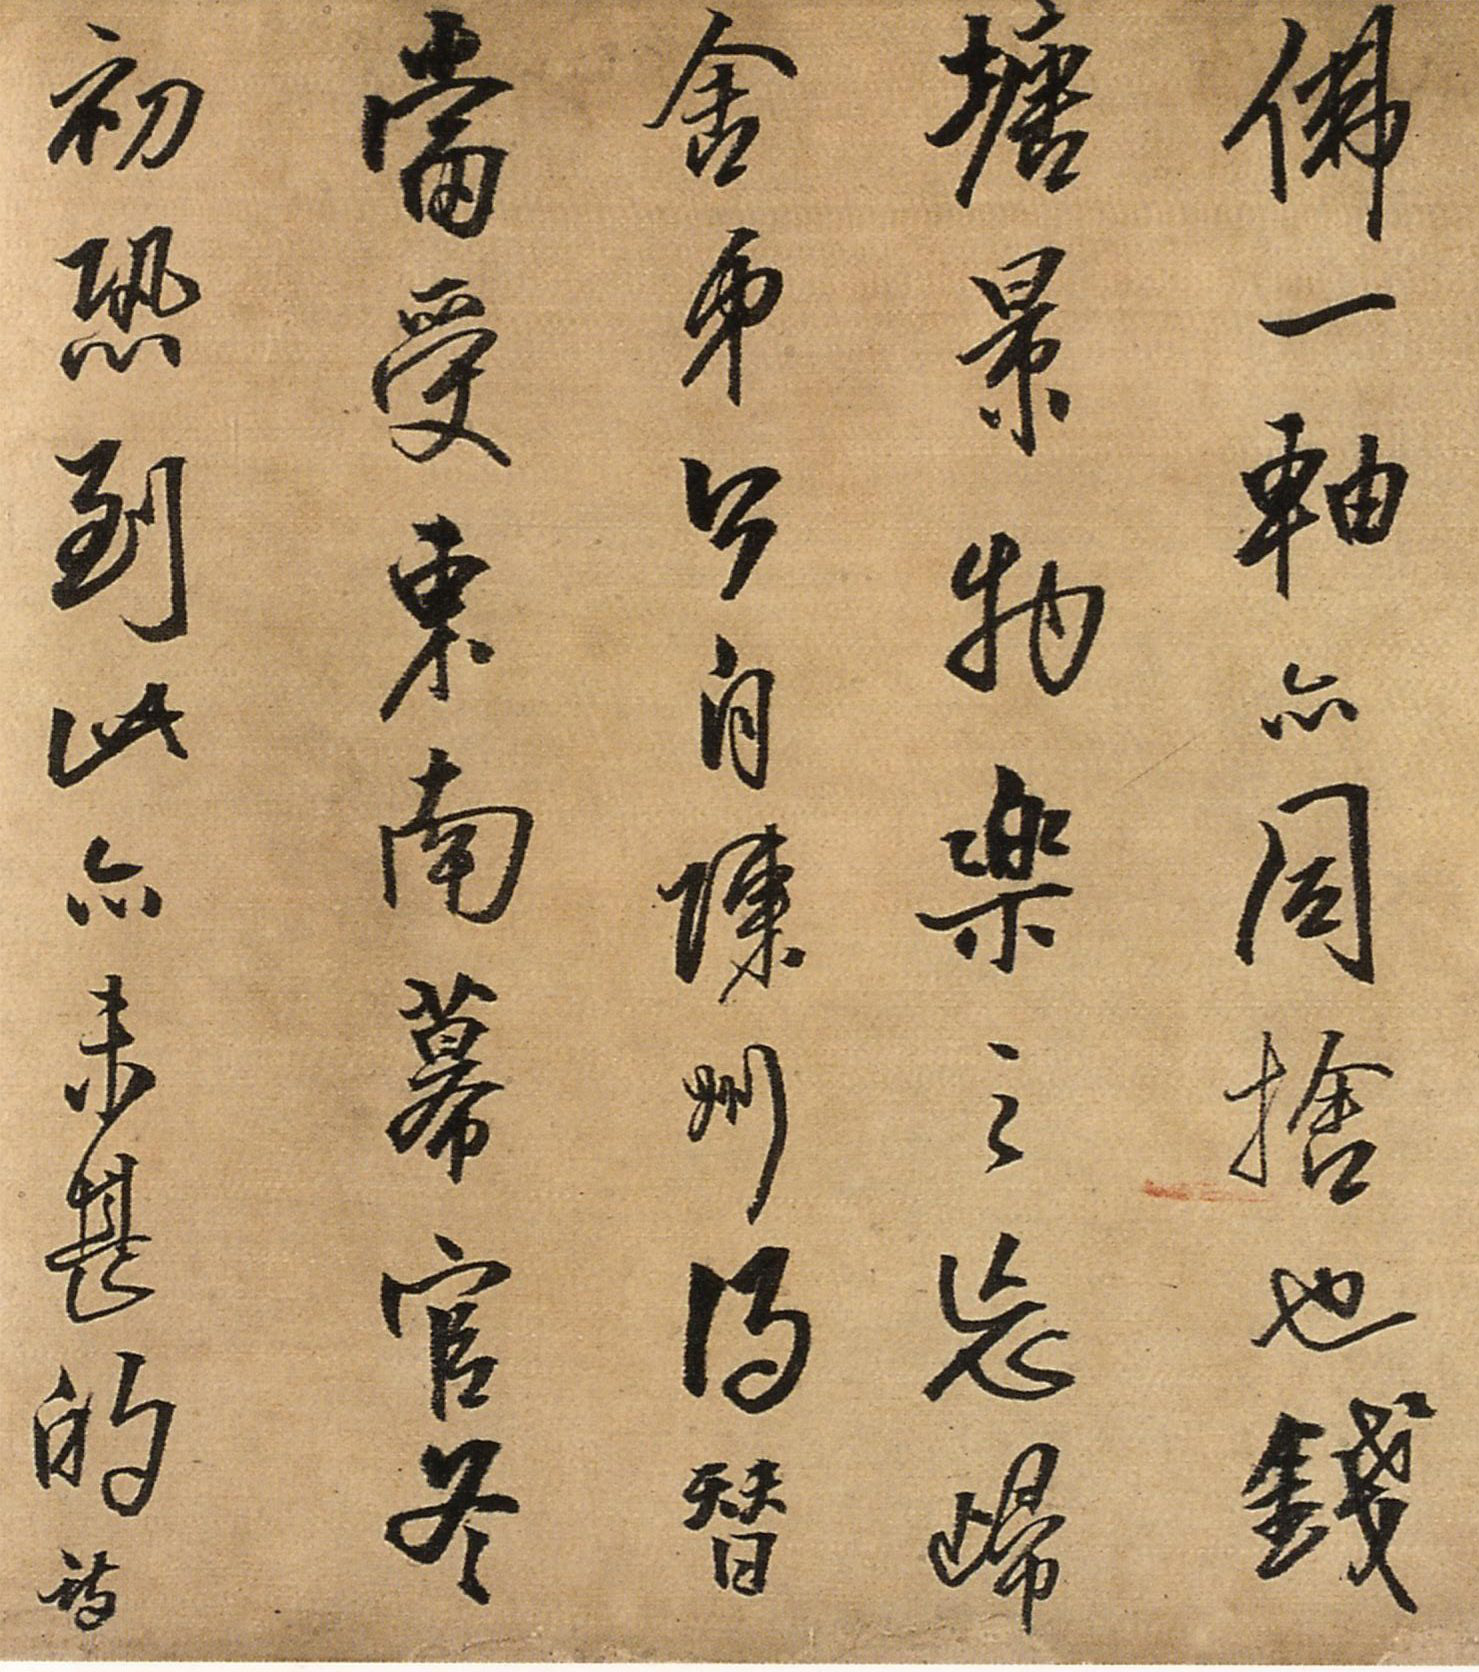 佛一軸亦同捨也錢
塘景物樂之忘歸
舍弟今自陳州得替
當受東南幕官冬
初恐到此亦未甚的詩